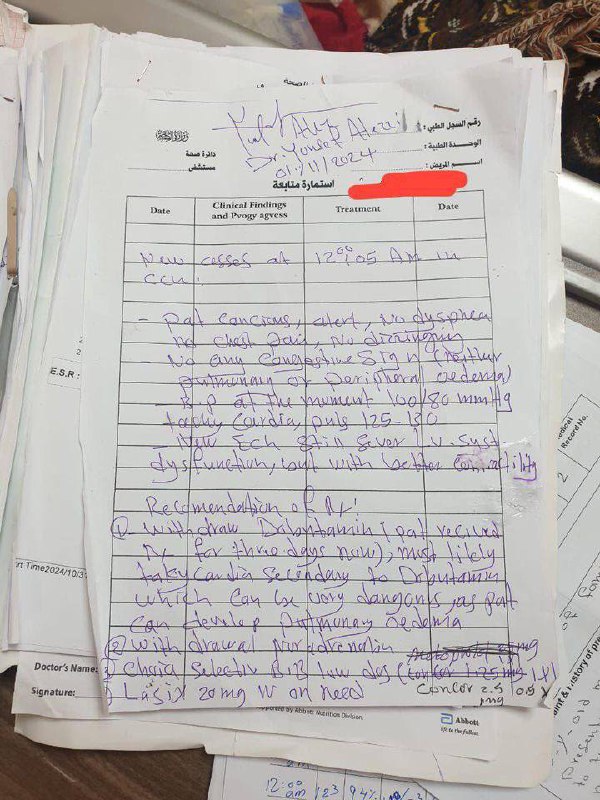 Dr. Yousef
01/11/2024
وزارة الصحة
دائرة صحة
مستشفى
رقم السجل الطبي :
الوحدة الطبية :
اسم المريض :
استمارة متابعة
Date
Clinical Findings and Pvogy agvess
Treatment
Date
New casses at 12:05 AM in
CCU:
- pat concious, alert, No dysphea
no chest pain, No
No any congestive sign (neither
pulmonary or peripheral oedema)
- B.p at the moment 100/80 mmHg
tachy cardia, puls 125-130
- New Ech still sever L.v. syst
dysfunction, but with better contractility
Recomendation of Rx:
① withdraw Dobutamin (pat recived
Rx for three days now), most likely
taky cardia secondary to Dobutamin
which can be very dangous, as pat
can develop pulmonary oedema
② with drawal Nor adrenalin
③ selective B.B low dos (
Concor 2.5 mg
) Lasix 20 mg IV on need
E.S.R :
rt Time2024/10/3
Doctor's Name:
Signature:
by Abbott Nutrition Division.
Abbott
edical
Record No.
2
12:00 am
123
94%